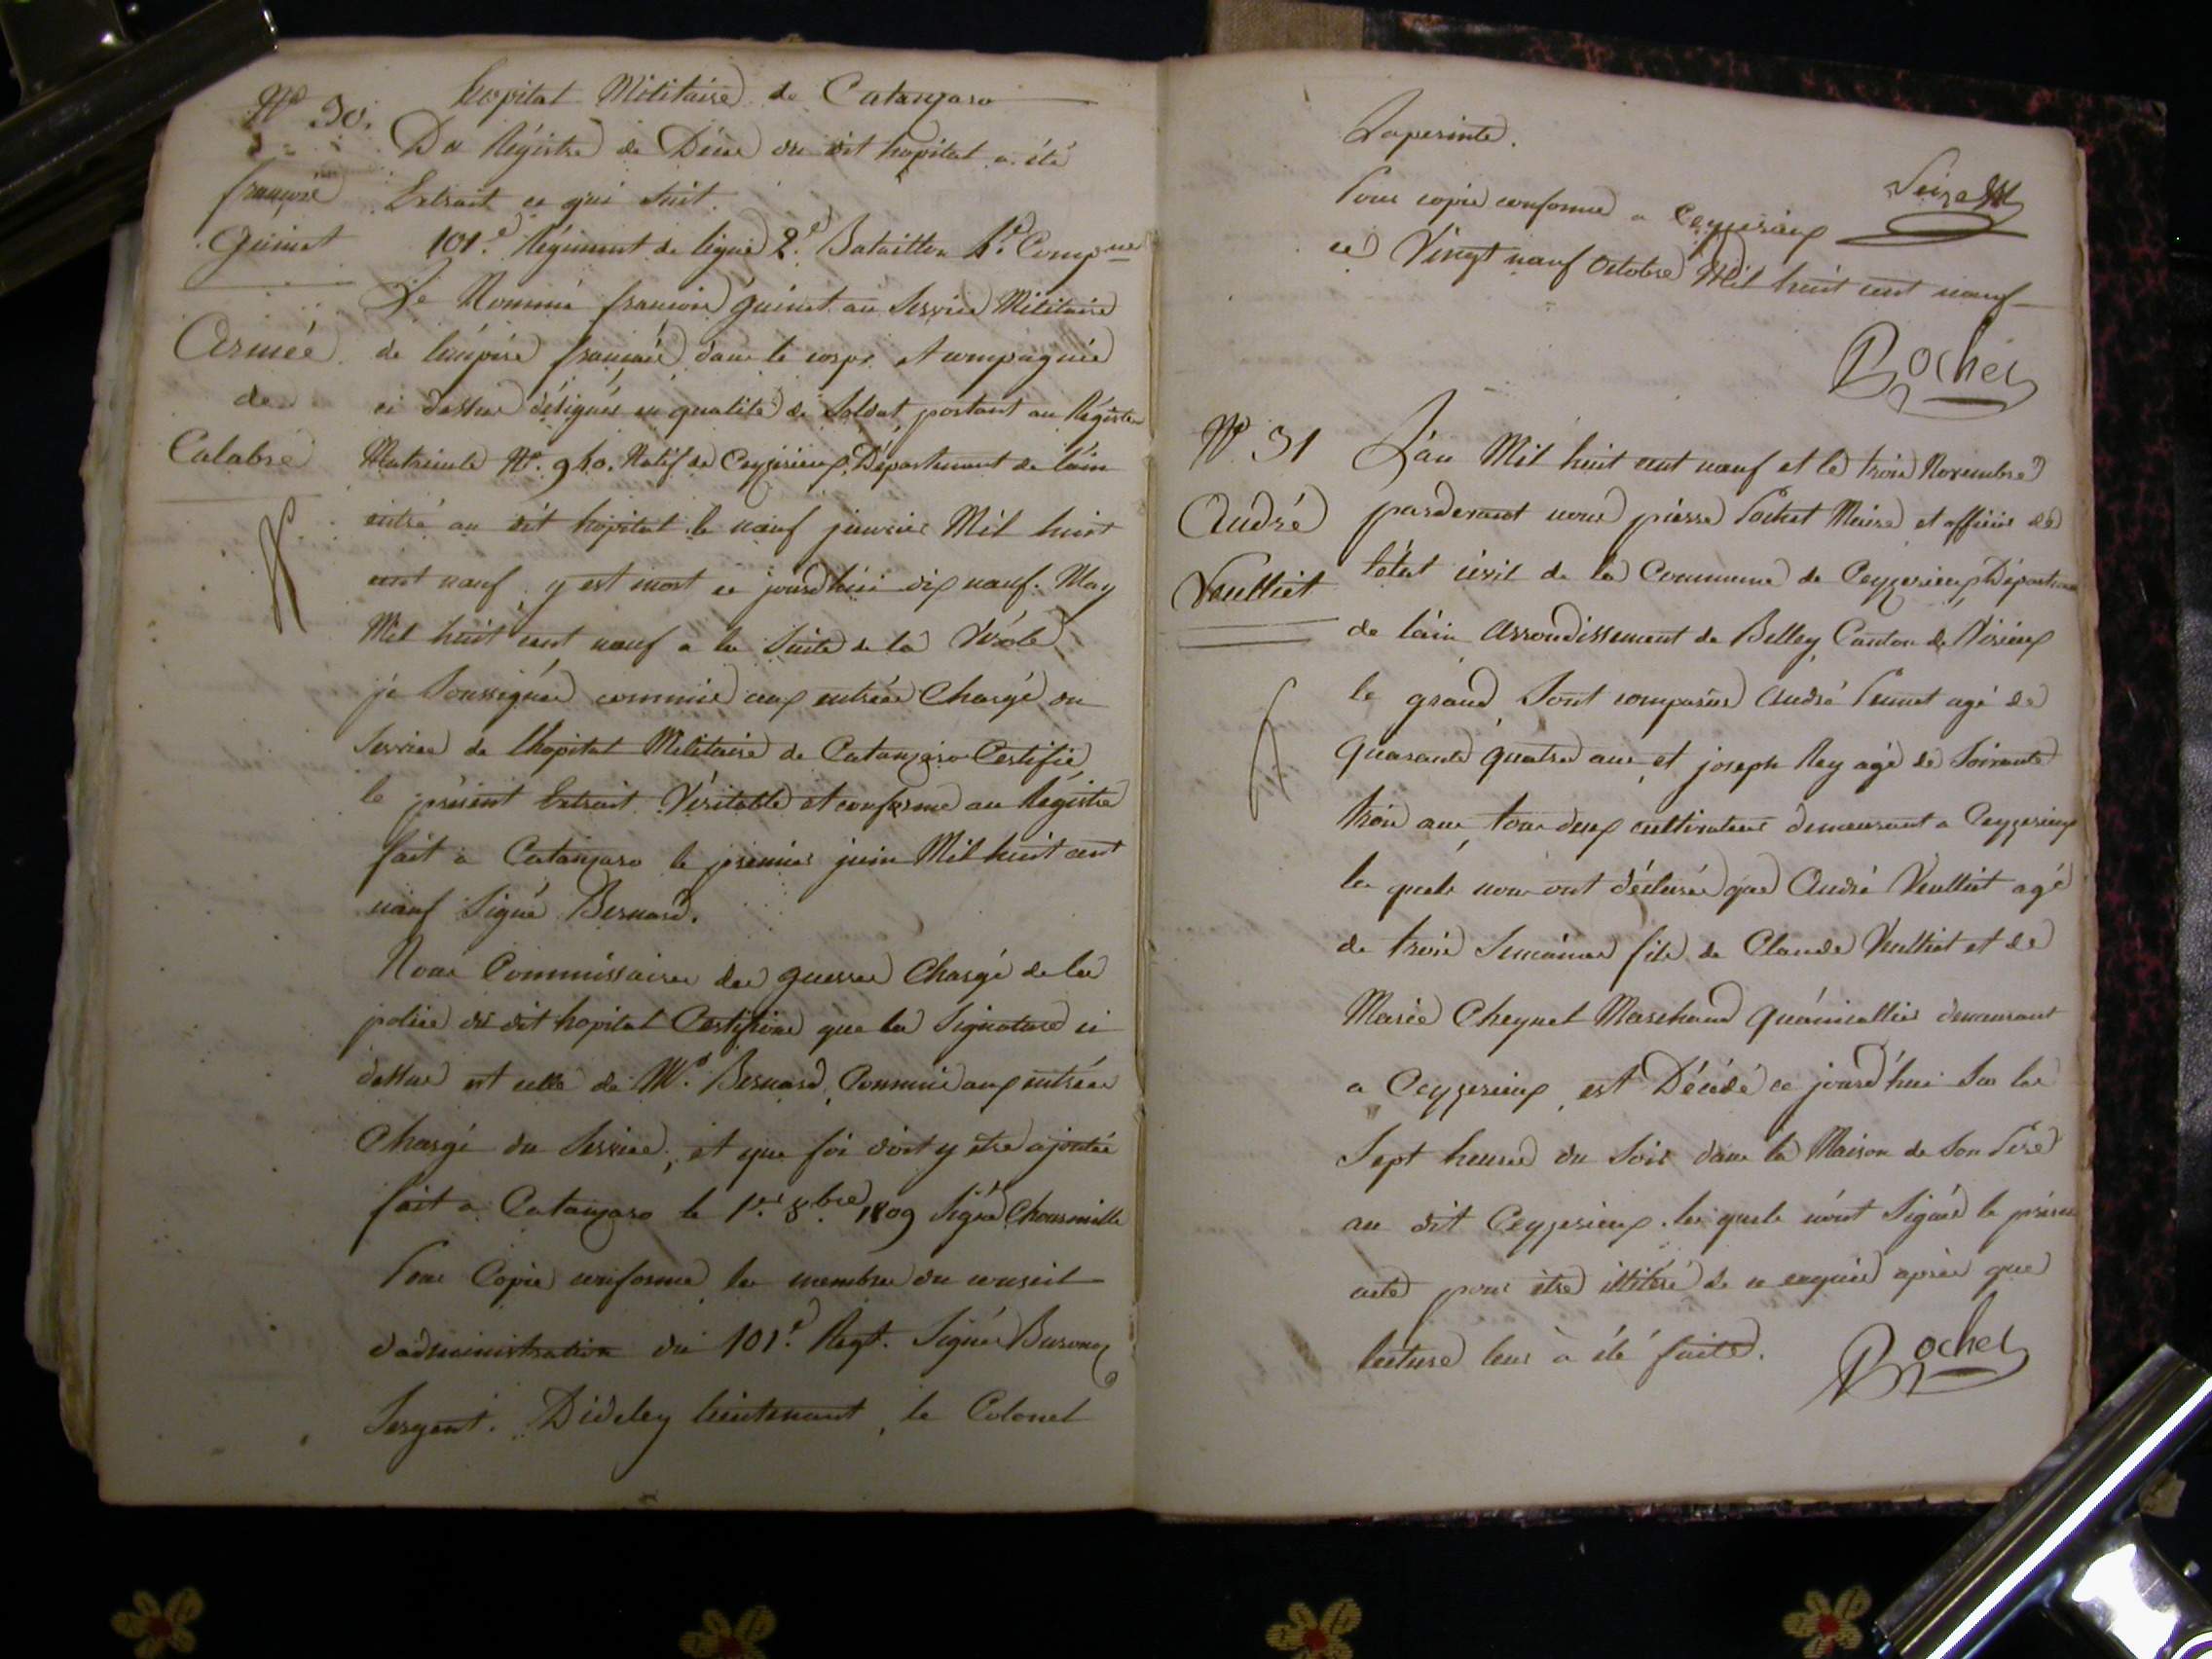 N° 30.
françois
Guinet
Armée
de
Calabre
hopital Militaire de Catanzaro
Du Régistre de Décès du dit hopital a été
Extrait ce qui suit.
101.e Régiment de ligne 2.e Bataillon 4.e Comp.nie
Le Nommé françois guinet au Service Militaire
de l'empire français dans le corps et compagnie
ci dessus désignés en qualité de Soldat, portant au Régistre
Matricule N°. 940. Natif de Ceyzerieux, Département de l'ain
entré au dit hopital le neuf janvier Mil huit
cent neuf, y est mort ce jourd'hui dix neuf May
Mil huit cent neuf a la Suite de la
je Soussigné commis aux entrées Chargé du
Service de l'hopital Militaire de Catanzaro Certifie
le présent Extrait Véritable et conforme au Régistre
fait a Catanzaro le premier juin Mil huit cent
neuf Signé Bernard.
Nous Commissaires des guerres Chargé de la
police du dit hopital Certifions que la Signature ci
dessus est celle de Mr. Bernard, Commis aux entrées
Chargé du Service, et que foi doit y être ajoutée
fait a Catanzaro le 1.er 8.bre 1809 Signé
Pour Copie conforme les membres du conseil
d'administration du 101.e Regt. Signés
Sergent. Dideley lieutenant, le Colonel
Laperinte.
Pour copie conforme a Ceyzerieux
ce Vingt neuf Octobre Mil huit cent neuf
N° 31
André
Veulliet
L'an Mil huit cent neuf et le trois Novembre
pardevant nous pierre Pochet Maire et officier de
l'état civil de la Commune de Ceyzerieux Département
de l'ain Arrondissement de Belley Canton de Virieux
le grand Sont comparus André Peunet agé de
quarante quatre ans, et joseph Rey agé de Soixante
trois ans tous deux cultivateurs demeurant a Ceyzerieux
les quels nous ont déclarés que André Veulliet agé
de trois Semaines fils de Claude Veulliet et de
Marie Cheynet Marchand quincallier demeurant
a Ceyzerieux, est Décédé ce jourd'hui Sur les
Sept heures du Soir dans la Maison de Son Père
au dit Ceyzerieux. les quels n'ont Signés le présent
acte pour être illitéré de ce enquis après que
lecture leur à été faite.